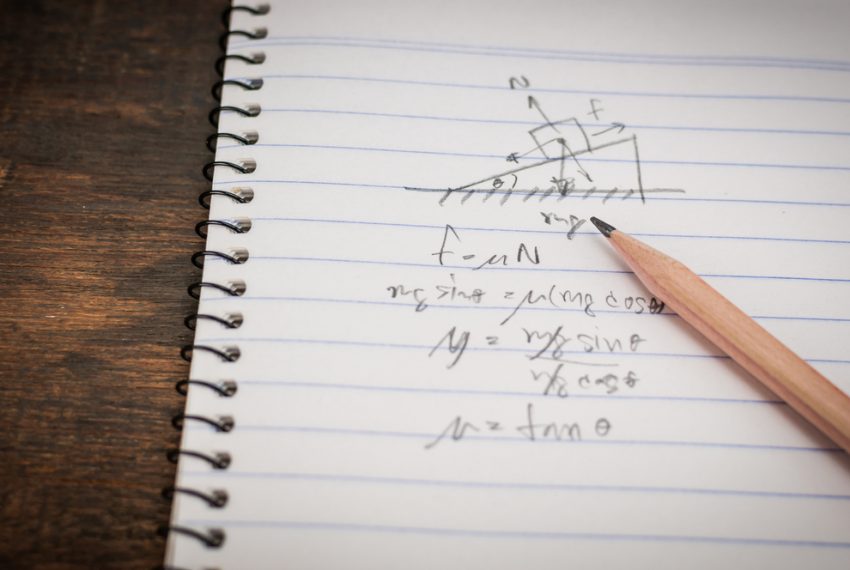 N
f
θ
mg
f = μN
mg sinθ = μ(mg cosθ)
μ = mg sinθ
mg cosθ
μ = tan θ